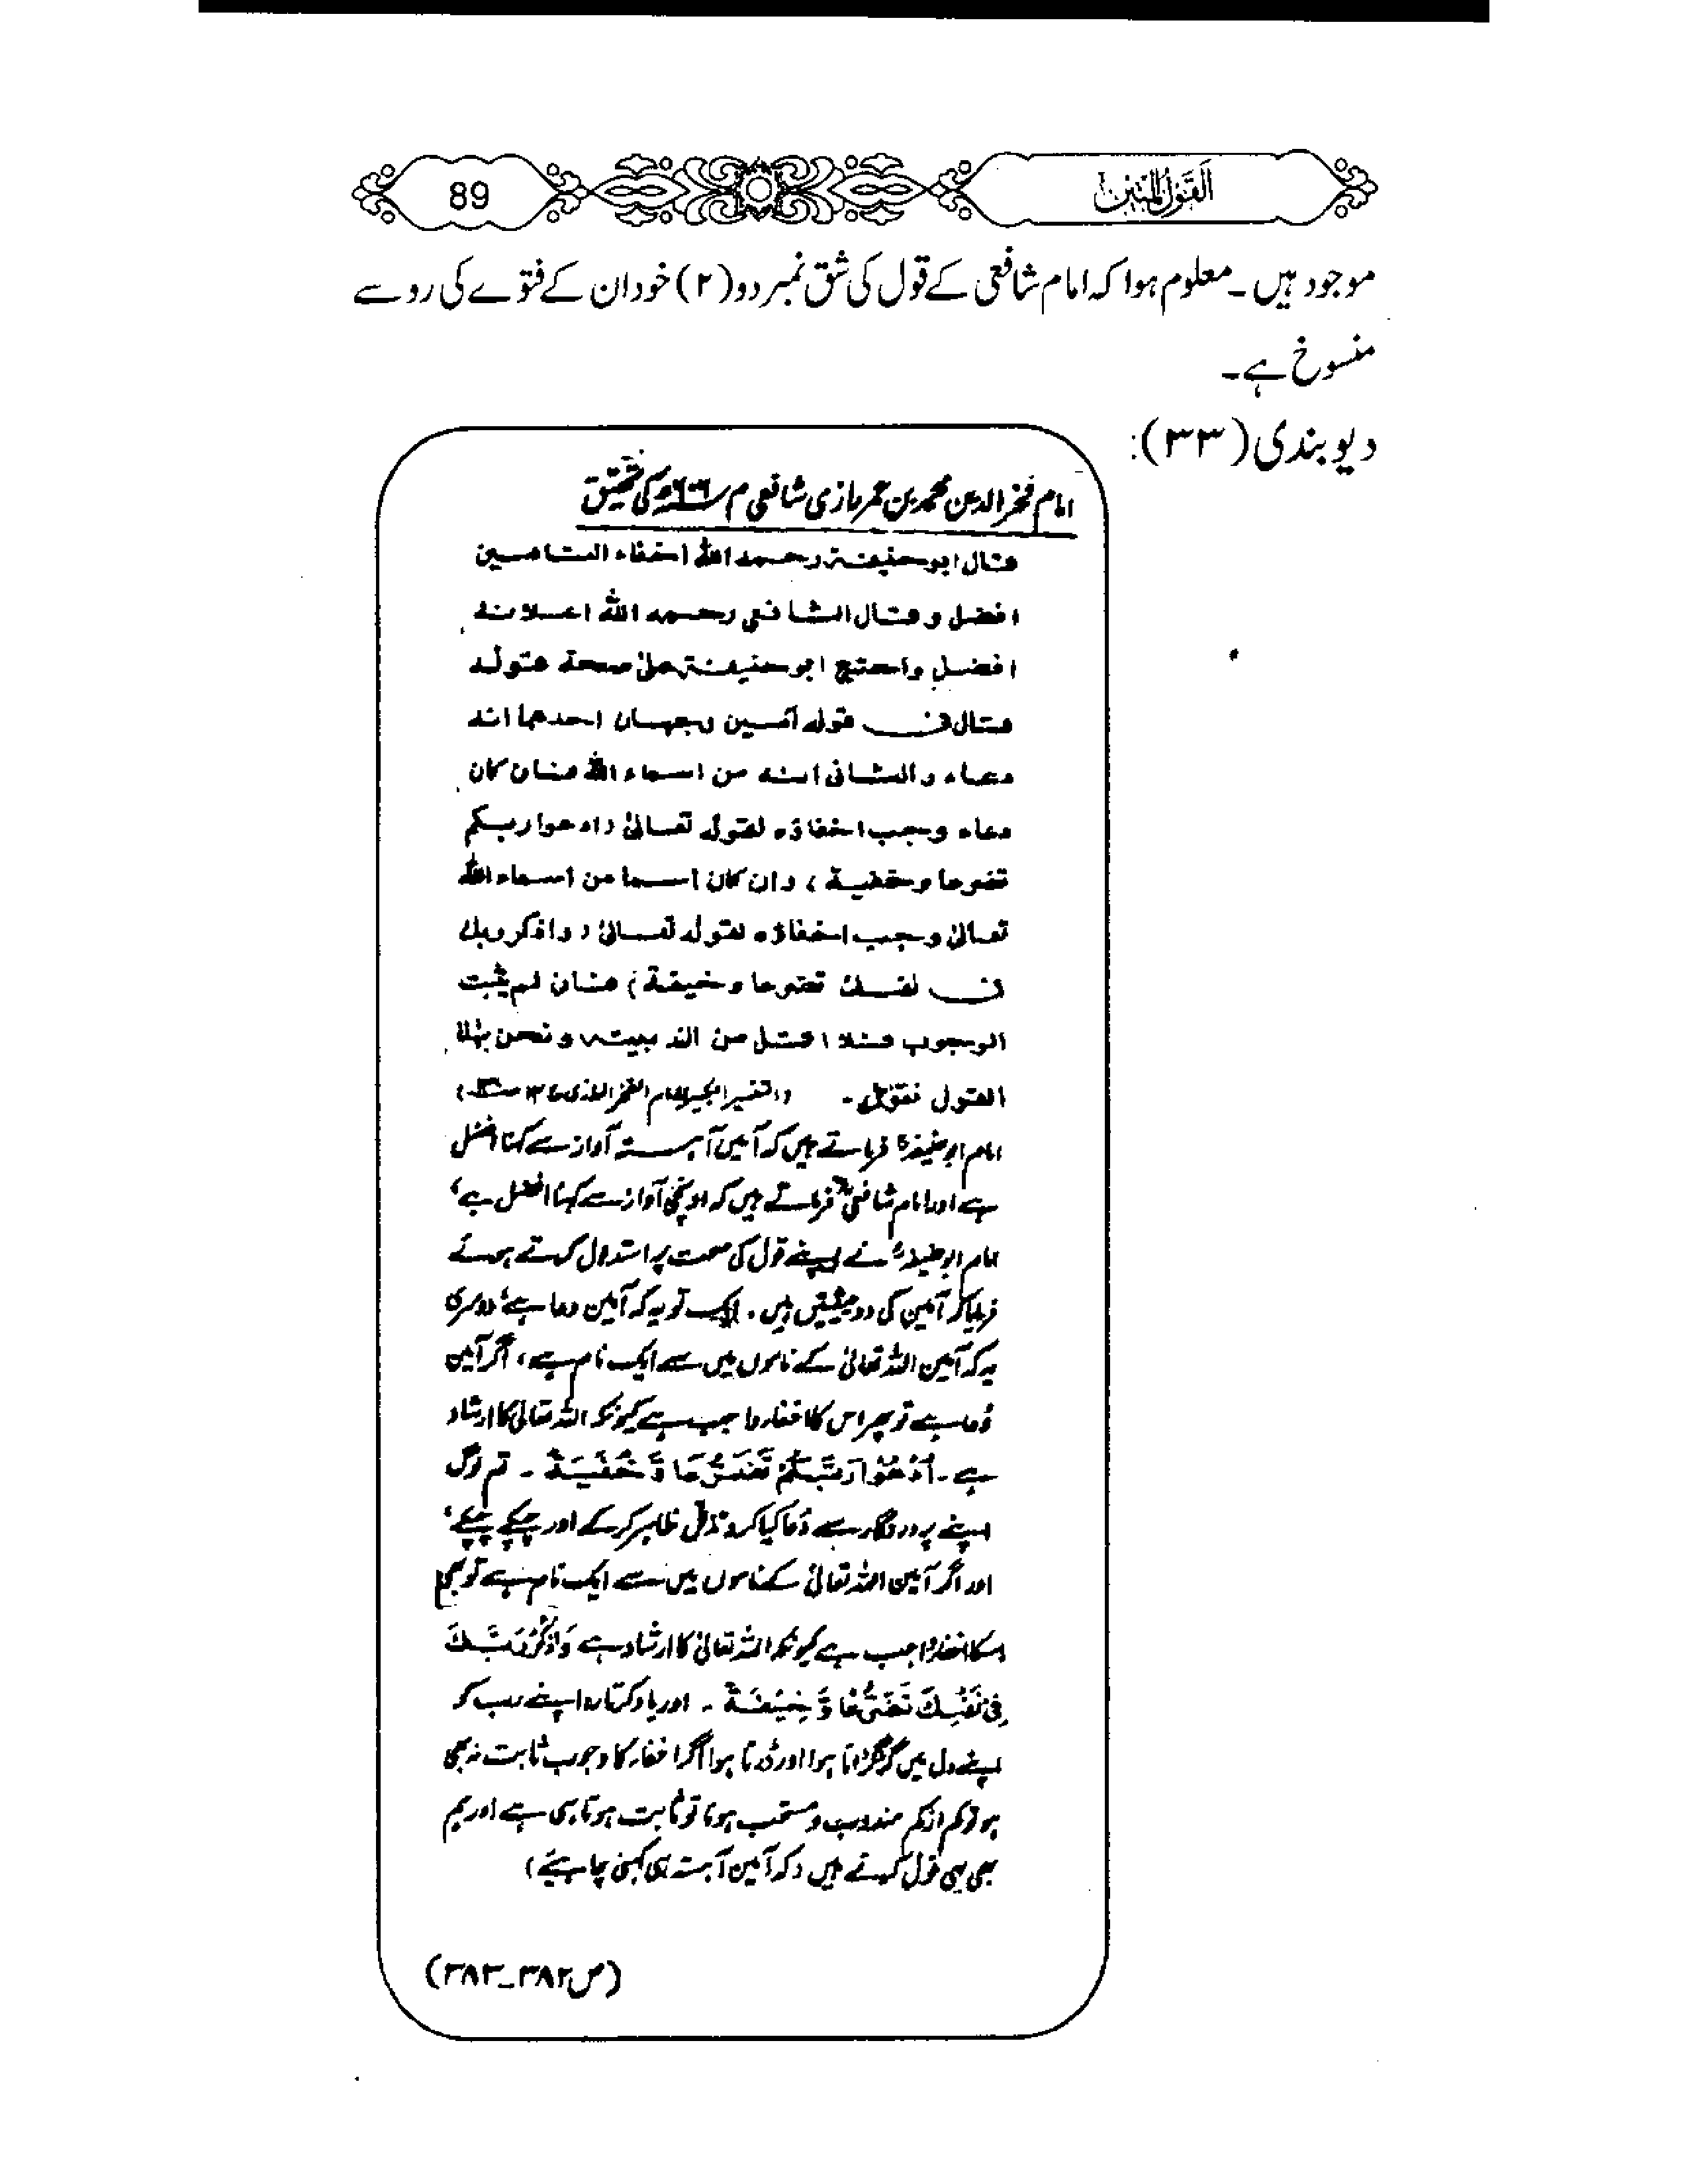 القول المتین
89
موجود ہیں۔ معلوم ہوا کہ امام شافعی کے قول کی شق نمبر دو (۲) خود ان کے فتوے کی رو سے
منسوخ ہے۔
دیوبندی (۳۳):
امام فخر الدین محمد بن عمر رازی شافعی م ۶۰۶ھ کی تحقیق
قال ابو حنیفۃ رحمہ اللہ اخفاء التامین
افضل وقال الشافعی رحمہ اللہ اعلانہ
افضل واحتج ابو حنیفۃ علیٰ صحۃ قولہ
قال فی قولہ آمین وجہان احدھما انہ
دعاء والثانی انہ من اسماء اللہ فان کان
دعاء وجب اخفاؤہ لقولہ تعالیٰ (ادعوا ربکم
تضرعا وخفیۃ) وان کان اسما من اسماء اللہ
تعالیٰ وجب اخفاؤہ لقولہ تعالیٰ (واذکر ربک
فی نفسک تضرعا وخیفۃ) فان لم یثبت
الوجوب فلا اقل من الندبیۃ، ونحن بہٰذا
القول نقول۔ (التفسیر الکبیر للامام الفخر الرازی ج۱۴
امام ابو حنیفہؒ فرماتے ہیں کہ آمین آہستہ آواز سے کہنا افضل
ہے اور امام شافعیؒ فرماتے ہیں کہ اونچی آواز سے کہنا افضل ہے،
امام ابو حنیفہؒ نے اپنے قول کی صحت پر استدلال کرتے ہوئے
فرمایا کہ آمین کی دو حیثیتیں ہیں۔ ایک تو یہ کہ آمین دعا ہے، دوسری
یہ کہ آمین اللہ تعالیٰ کے ناموں میں سے ایک نام ہے، اگر آمین
دُعا ہے تو پھر اس کا اخفاء واجب ہے کیونکہ اللہ تعالیٰ کا ارشاد
ہے۔ اُدْعُوْا رَبَّكُمْ تَضَرُّعًا وَّ خُفْيَةً ۔ تم لوگ
اپنے پروردگار سے دُعا کیا کرو تذلّل ظاہر کر کے اور چپکے چپکے،
اور اگر آمین اللہ تعالیٰ کے ناموں میں سے ایک نام ہے تو بھی
اسکا اخفاء واجب ہے کیونکہ اللہ تعالیٰ کا ارشاد ہے وَاذْكُرْ رَّبَّكَ
فِیْ نَفْسِكَ تَضَرُّعًا وَّ خِيْفَةً ۔ اور یاد کرتا رہ اپنے رب کو
اپنے دل میں گڑگڑاتا ہوا اور ڈرتا ہوا اگر اخفاء کا وجوب ثابت نہ بھی
ہو تو کم از کم مندوب و مستحب ہونا تو ثابت ہوتا ہی ہے اور ہم
بھی یہی قول کہتے ہیں (کہ آمین آہستہ ہی کہنی چاہیئے)
(ص۳۸۲۔۳۸۳)